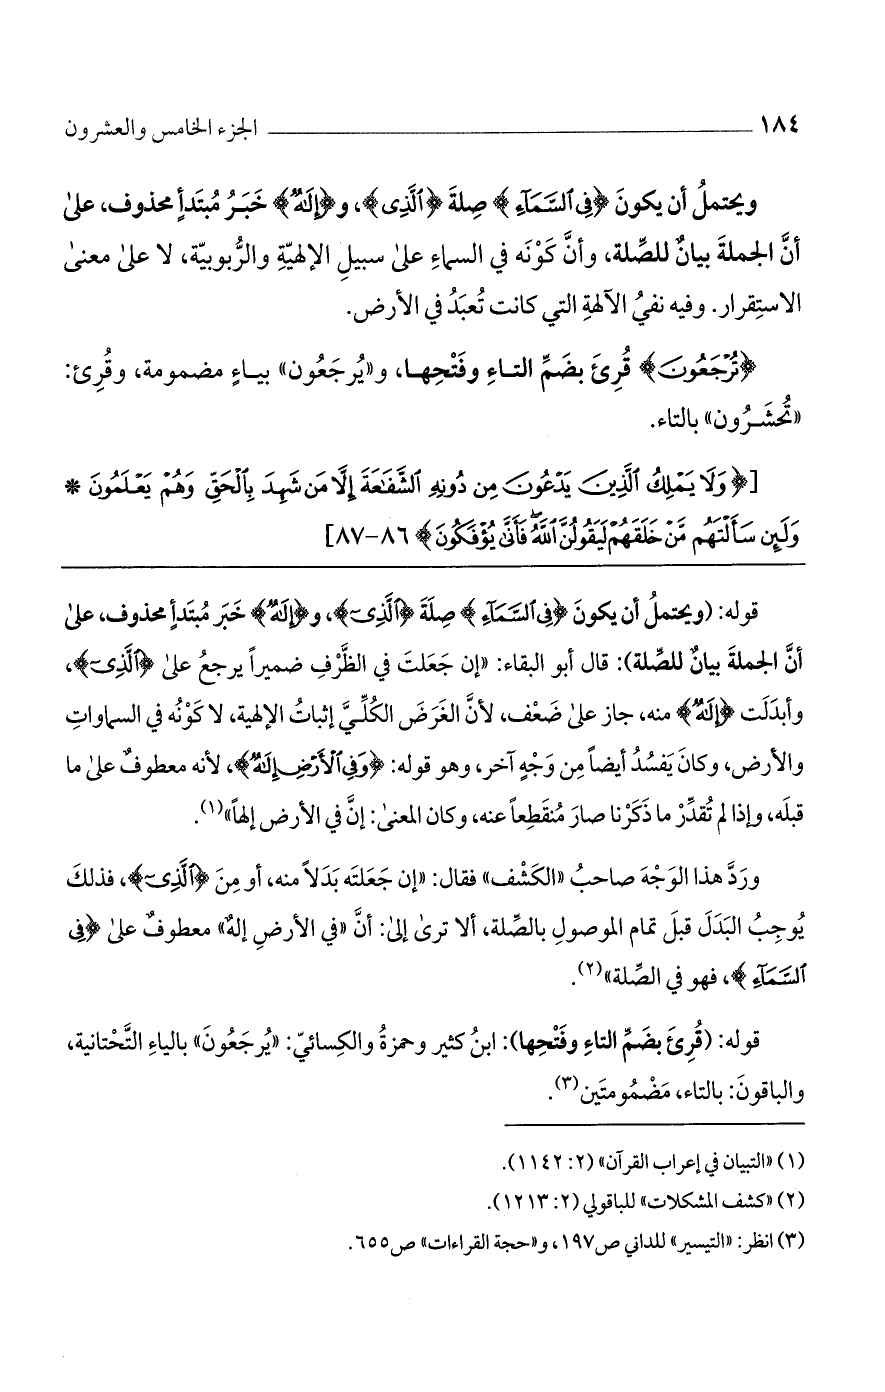 ١٨٤ الجزء الخامس والعشرون
ويحتملُ أن يكونَ ﴿فِي ٱلسَّمَآءِ﴾ صِلةَ ﴿ٱلَّذِى﴾، و﴿إِلَٰهٌ﴾ خَبَرُ مُبتَدأٍ محذوف، علىٰ
أنَّ الجملةَ بيانٌ للصِّلة، وأنَّ كَوْنَه في السماءِ علىٰ سبيلِ الإلهيّةِ والرُّبوبيّة، لا علىٰ معنىٰ
الاستِقرار. وفيه نفيُ الآلهةِ التي كانت تُعبَدُ في الأرض.
﴿تُرْجَعُونَ﴾ قُرِئَ بضَمِّ التاءِ وفَتْحِها، و«يُرجَعُون» بياءٍ مضمومة، وقُرِئ:
«تُحشَرُون» بالتاء.
[﴿وَلَا يَمْلِكُ ٱلَّذِينَ يَدْعُونَ مِن دُونِهِ ٱلشَّفَٰعَةَ إِلَّا مَن شَهِدَ بِٱلْحَقِّ وَهُمْ يَعْلَمُونَ *
وَلَئِن سَأَلْتَهُم مَّنْ خَلَقَهُمْ لَيَقُولُنَّ ٱللَّهُ ۖ فَأَنَّىٰ يُؤْفَكُونَ﴾ ٨٦-٨٧]
قوله: (ويحتملُ أن يكونَ ﴿فِي ٱلسَّمَآءِ﴾ صِلَةَ ﴿ٱلَّذِى﴾، و﴿إِلَٰهٌ﴾ خَبَر مُبتَدأٍ محذوف، علىٰ
أنَّ الجملةَ بيانٌ للصِّلة): قال أبو البقاء: «إن جَعَلتَ في الظَّرْفِ ضميراً يرجعُ علىٰ ﴿ٱلَّذِى﴾،
وأبدَلَت ﴿إِلَٰهٌ﴾ منه، جاز علىٰ ضَعْف، لأنَّ الغَرَضَ الكُلِّيَّ إثباتُ الإلهية، لا كَوْنُه في السماواتِ
والأرض، وكانَ يَفسُدُ أيضاً مِن وَجْهٍ آخر، وهو قوله: ﴿وَفِي ٱلْأَرْضِ إِلَٰهٌ﴾، لأنه معطوفٌ علىٰ ما
قبلَه، وإذا لم تُقدِّرْ ما ذَكَرْنا صارَ مُنقَطِعاً عنه، وكان المعنىٰ: إنَّ في الأرض إلهاً»(١).
ورَدَّ هذا الوَجْهَ صاحبُ «الكَشْف» فقال: «إن جَعَلتَه بَدَلاً منه، أو مِنَ ﴿ٱلَّذِى﴾، فذلكَ
يُوجِبُ البَدَلَ قبلَ تمام الموصولِ بالصِّلة، ألا ترىٰ إلىٰ: أنَّ «في الأرضِ إلهٌ» معطوفٌ علىٰ ﴿فِي
ٱلسَّمَآءِ﴾، فهو في الصِّلة»(٢).
قوله: (قُرِئَ بضَمِّ التاءِ وفَتْحِها): ابنُ كثير وحمزةُ والكِسائيّ: «يُرجَعُونَ» بالياءِ التَّحْتانية،
والباقونَ: بالتاء، مَضْمُومتَين(٣).
(١) «التبيان في إعراب القرآن» (٢: ١١٤٢).
(٢) «كشف المشكلات» للباقولي (٢: ١٢١٣).
(٣) انظر: «التيسير» للداني ص١٩٧، و«حجة القراءات» ص٦٥٥.